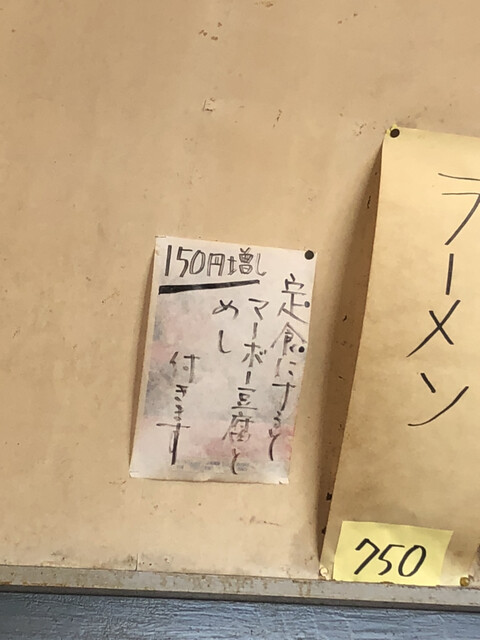 150円増し
定食にすると
マーボー豆腐と
めし
付きます
ラーメン
750